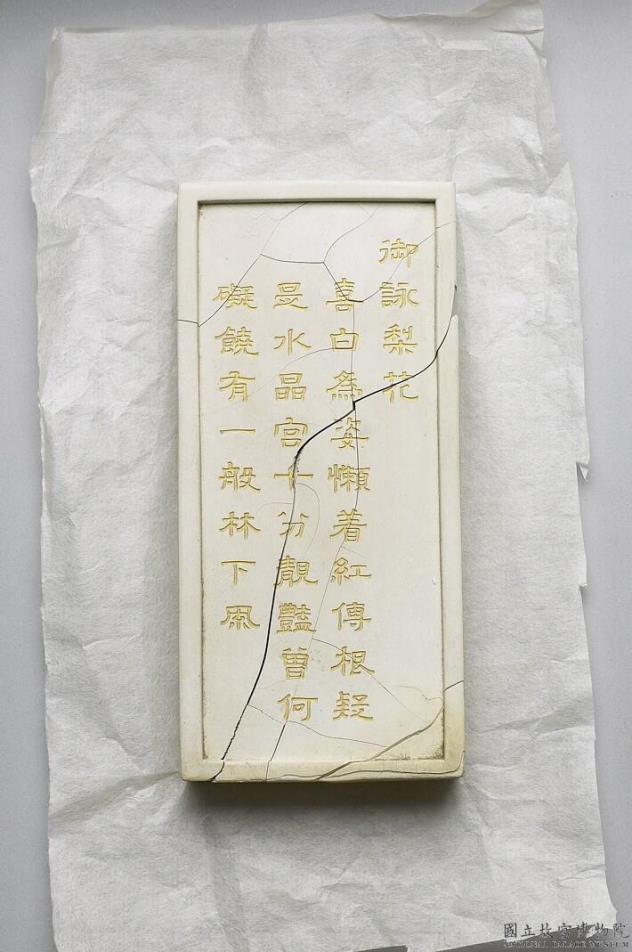 御詠梨花
喜白為姿懶着紅傅根疑
是水晶宮十分靚豔曾何
礙饒有一般林下風
國立故宮博物院
NATIONAL PALACE MUSEUM